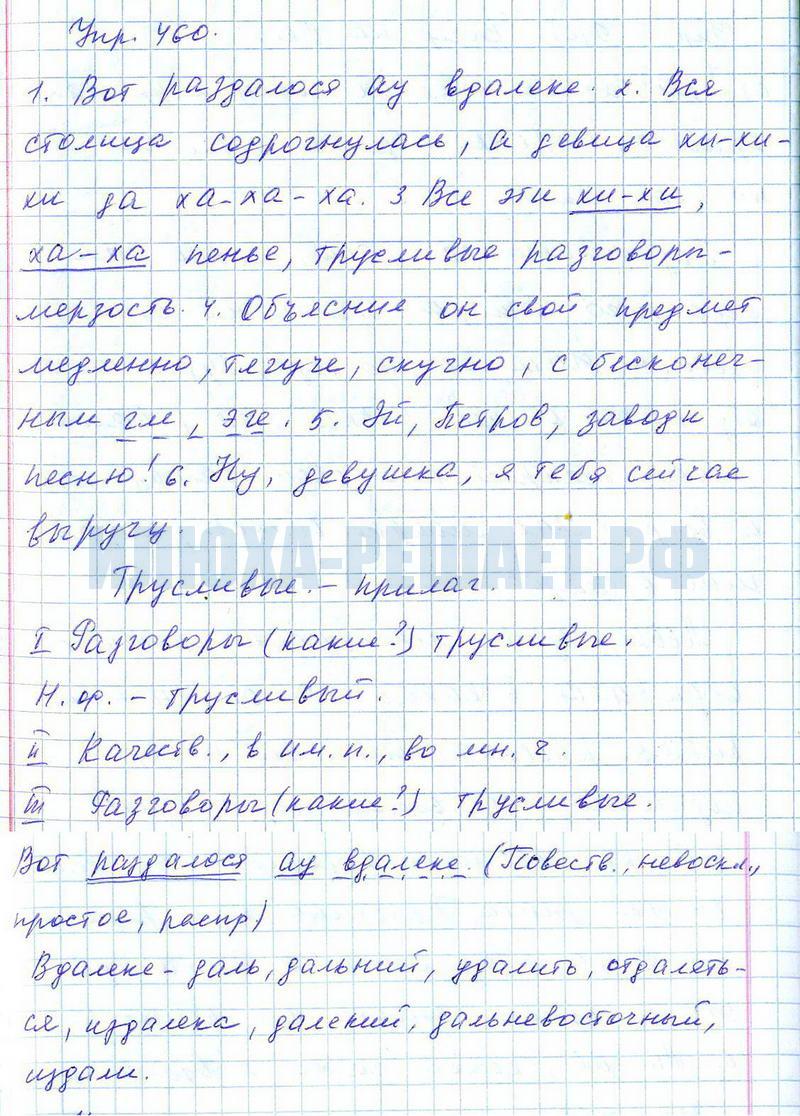 Упр. 460.
1. Вот раздалося ау вдалеке. 2. Вся
столица содрогнулась, а девица хи-хи-
хи да ха-ха-ха. 3 Все эти хи-хи,
ха-ха пенье, трусливые разговоры -
мерзость. 4. Объяснил он свой предмет
медленно, тягуче, скучно, с бесконеч-
ным гм, эге. 5. Эй, Петров, заводи
песню! 6. Ну, девушка, я тебя сейчас
выручу.
ИЛЮХА-РЕШАЕТ.РФ
Трусливые. - прилаг.
I Разговоры (какие?) трусливые.
Н. ф. - трусливый.
II Качеств., в им. п., во мн. ч.
III Разговоры (какие?) трусливые.
Вот раздалося ау вдалеке. (Повеств., невоскл.,
простое, распр)
Вдалеке - даль, дальний, удалить, отдалять-
ся, издалека, далекий, дальневосточный,
издали.